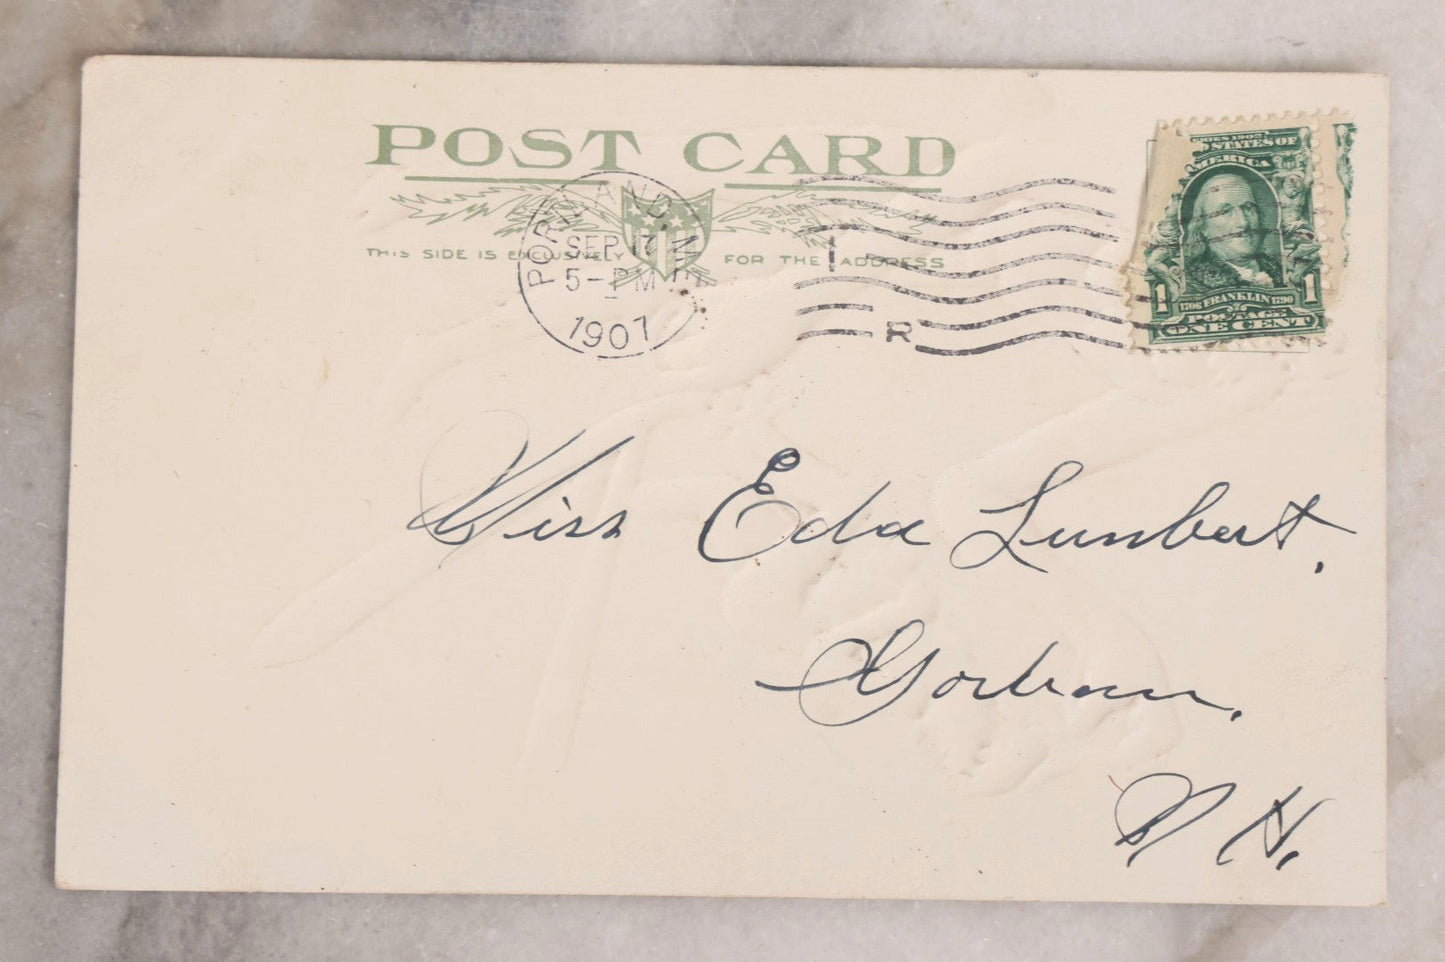 POST CARD
THIS SIDE IS EXCLUSIVELY FOR THE ADDRESS
PORTLAND ME
SEP 17
5-PM
1907
1
R
SERIES 1902
STATES OF
AMERICA
1 1706 FRANKLIN 1790 1
POSTAGE
ONE CENT
Miss Eda Lunbert,
Gorham,
N H,